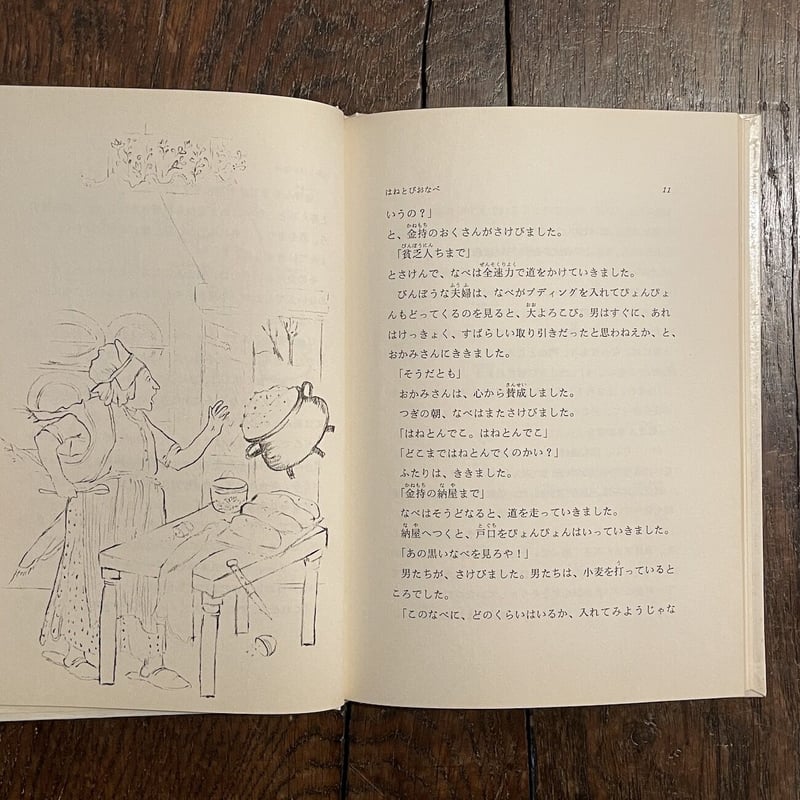 はねとびおなべ 11
いうの？」
と、金持のおくさんがさけびました。
「貧乏人ちまで」
とさけんで、なべは全速力で道をかけていきました。
びんぼうな夫婦は、なべがプディングを入れてぴょんぴょ
んもどってくるのを見ると、大よろこび。男はすぐに、あれ
はけっきょく、すばらしい取り引きだったと思わねえか、と、
おかみさんにききました。
「そうだとも」
おかみさんは、心から賛成しました。
つぎの朝、なべはまたさけびました。
「はねとんでこ。はねとんでこ」
「どこまではねとんでくのかい？」
ふたりは、ききました。
「金持の納屋まで」
なべはそうどなると、道を走っていきました。
納屋へつくと、戸口をぴょんぴょんはいっていきました。
「あの黒いなべを見ろや！」
男たちが、さけびました。男たちは、小麦を打っていると
ころでした。
「このなべに、どのくらいはいるか、入れてみようじゃな